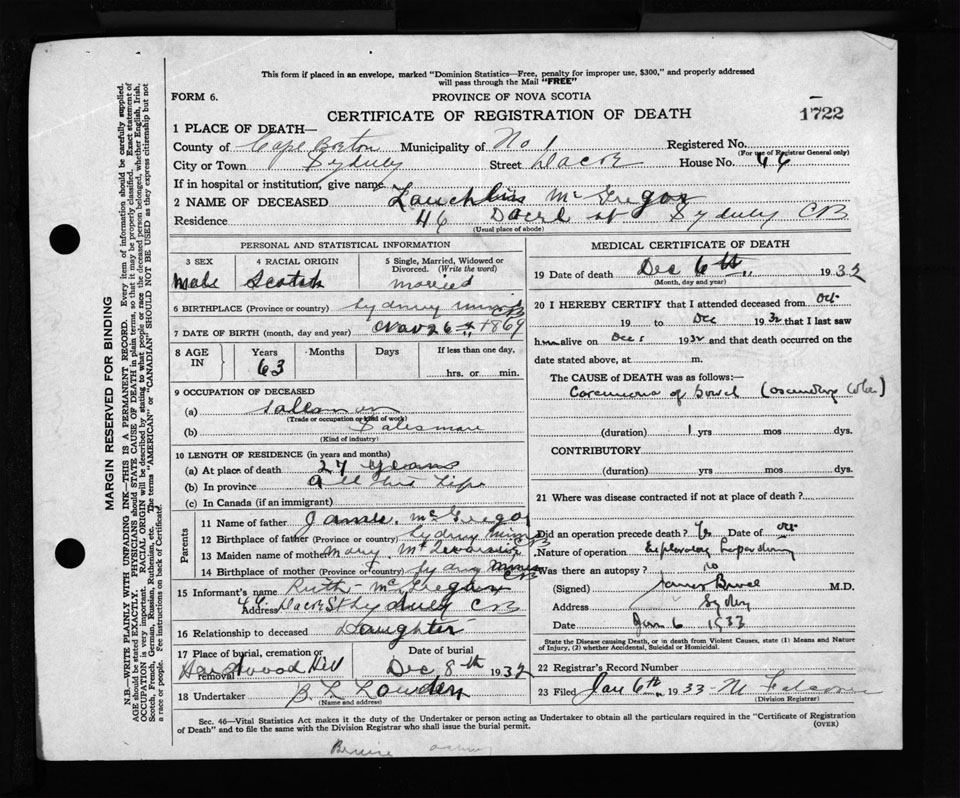 This form if placed in an envelope, marked "Dominion Statistics—Free, penalty for improper use, $300," and properly addressed
will pass through the Mail "FREE"
FORM 6.
PROVINCE OF NOVA SCOTIA
1722
CERTIFICATE OF REGISTRATION OF DEATH
1 PLACE OF DEATH—
County of Cape Breton Municipality of No 1 Registered No.
(For use of Registrar General only)
City or Town Sydney Street House No. 46
If in hospital or institution, give name
2 NAME OF DECEASED Lauchlin McGregor
Residence 46 st Sydney CB
(Usual place of abode)
PERSONAL AND STATISTICAL INFORMATION
3 SEX
Male
4 RACIAL ORIGIN
Scotch
5 Single, Married, Widowed or Divorced. (Write the word)
married
6 BIRTHPLACE (Province or country) Sydney Mines CB
7 DATE OF BIRTH (month, day and year) Nov 26th 1869
8 AGE IN
Years Months Days If less than one day,
63 hrs. or min.
9 OCCUPATION OF DECEASED
(a)
(Trade or occupation or kind of work)
(b) Salesman
(Kind of industry)
10 LENGTH OF RESIDENCE (in years and months)
(a) At place of death 27 years
(b) In province All his life
(c) In Canada (if an immigrant)
Parents
11 Name of father James McGregor
12 Birthplace of father (Province or country) Sydney Mines CB
13 Maiden name of mother Mary
14 Birthplace of mother (Province or country) Sydney Mines CB
15 Informant's name Ruth McGregor
Address 46 St Sydney CB
16 Relationship to deceased Daughter
17 Place of burial, cremation or removal Hardwood Hill
Date of burial Dec 8th 1932
18 Undertaker
(Name and address)
MEDICAL CERTIFICATE OF DEATH
19 Date of death Dec 6th 1932
(Month, day and year)
20 I HEREBY CERTIFY that I attended deceased from Oct
19 to Dec 1932 that I last saw
him alive on Dec 5 1932 and that death occurred on the
date stated above, at m.
The CAUSE OF DEATH was as follows:—
Carcinoma of Bowel (ascending colon)
(duration) 1 yrs mos dys.
CONTRIBUTORY
(duration) yrs mos dys.
21 Where was disease contracted if not at place of death?
Did an operation precede death? Yes Date of Oct
Nature of operation Exploratory
Was there an autopsy? no
(Signed) James Bruce M.D.
Address Sydney
Date Jan 6 1933
State the Disease causing Death, or in death from Violent Causes, state (1) Means and Nature
of Injury, (2) whether Accidental, Suicidal or Homicidal.
22 Registrar's Record Number
23 Filed Jan 6th 1933
(Division Registrar)
Sec. 46—Vital Statistics Act makes it the duty of the Undertaker or person acting as Undertaker to obtain all the particulars required in the "Certificate of Registration
of Death" and to file the same with the Division Registrar who shall issue the burial permit.
(OVER)
MARGIN RESERVED FOR BINDING
N.B.—WRITE PLAINLY WITH UNFADING INK—THIS IS A PERMANENT RECORD. Every item of information should be carefully supplied.
AGE should be stated EXACTLY. PHYSICIANS should STATE CAUSE OF DEATH in plain terms, so that it may be properly classified. Exact statement of
OCCUPATION is very important. RACIAL ORIGIN will be described by stating to what people or race the deceased person belonged, whether English, Irish,
Scotch, French, German, Russian, Ruthenian, etc. The terms "AMERICAN" or "CANADIAN" SHOULD NOT BE USED as they express citizenship but not
a race or people. See instructions on back of Certificate.